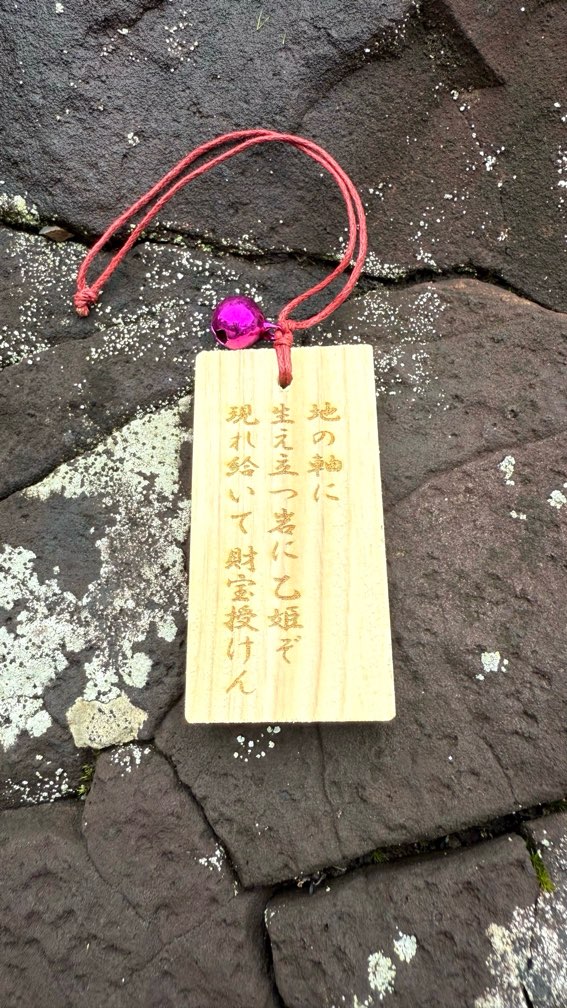 地の軸に
生え立つ岩に乙姫ぞ
現れ給いて財宝授けん